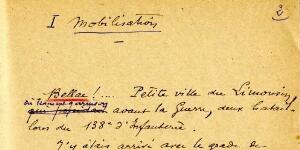 2
I Mobilisation
Bellac !.... Petite ville du Limousin
où tenaient garnison
avant la Guerre, deux batail-
lons du 138e d'Infanterie.
J'y étais arrivé avec le grade de